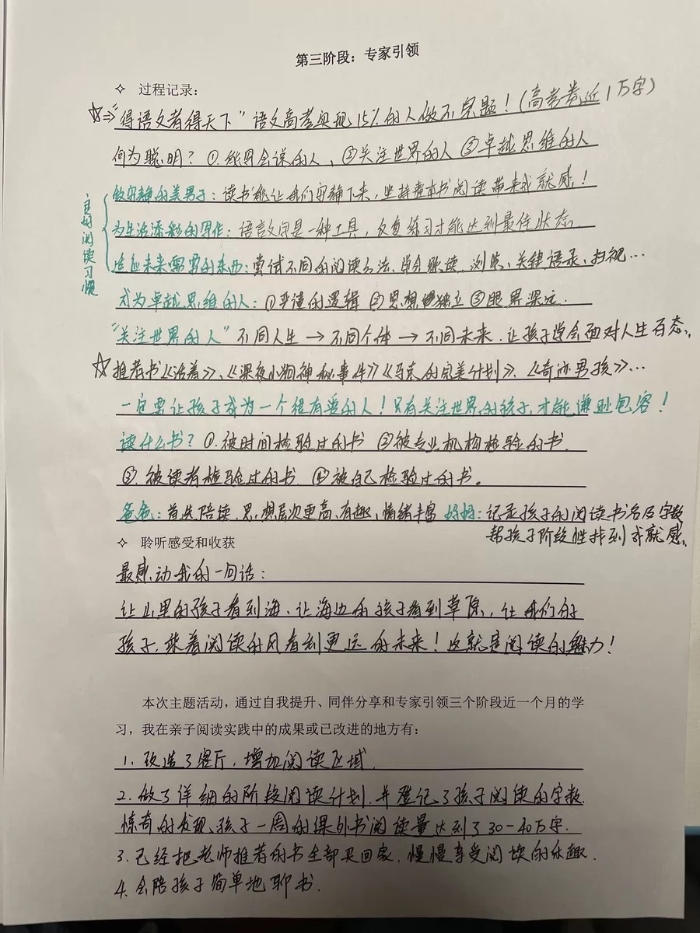 第三阶段：专家引领
✧ 过程记录：
☆⇒“得语文者得天下”语文高考出现15%的人做不完题！(高考卷近1万字)
何为聪明？①能写会说的人，②关注世界的人 ③卓越思维的人
良好阅读习惯
做安静的美男子：读书能让我们安静下来，坚持整本书阅读带来成就感！
为生活添彩的写作：语言文字是一种工具，反复练习才能达到最佳状态
追赶未来需要的东西：尝试不同的阅读方法，学会跳读、浏览、关键语录、扫视…
成为卓越思维的人：①严谨的逻辑 ②思想独立 ③眼界深远
“关注世界的人”不同人生→不同个体→不同未来.让孩子学会面对人生百态。
☆推荐书《活着》、《深夜小狗神秘事件》《马克的完美计划》、《奇迹男孩》…
一定要让孩子成为一个很有爱的人！只有关注世界的孩子，才能谦逊包容！
读什么书？①.被时间检验过的书 ②被专业机构检验的书.
③.被读者检验过的书 ④被自己检验过的书。
爸爸：首先陪读，思想层次更高、有趣，情绪丰富 妈妈：记录孩子的阅读书名及字数
帮孩子阶段性找到成就感。
✧ 聆听感受和收获
最感动我的一句话：
让山里的孩子看到海、让海边的孩子看到草原，让我们的
孩子，乘着阅读的风看到更远的未来！这就是阅读的魅力！
本次主题活动，通过自我提升、同伴分享和专家引领三个阶段近一个月的学
习，我在亲子阅读实践中的成果或已改进的地方有：
1、改造了客厅，增加阅读区域.
2.做了详细的阶段阅读计划.并登记了孩子阅读的字数.
惊奇的发现，孩子一周的课外书阅读量达到了30-40万字.
3.已经把老师推荐的书全部买回家.慢慢享受阅读的乐趣.
4.会陪孩子简单地聊书.